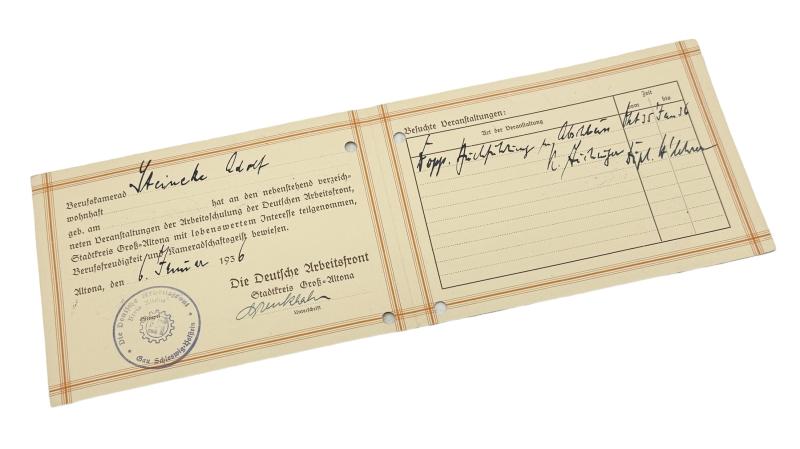 Berufskamerad Steincke Adolf
wohnhaft
geb. am hat an den nebenstehend verzeich-
neten Veranstaltungen der Arbeitsschulung der Deutschen Arbeitsfront,
Stadtkreis Groß-Altona mit lobenswerten Interesse teilgenommen,
Berufsfreudigkeit und Kameradschaftsgeist bewiesen.
Altona, den 6. Januar 1936
Die Deutsche Arbeitsfront
Stadtkreis Groß-Altona
Unterschrift
Die Deutsche Arbeitsfront
Stempel
Gau Schleswig-Holstein
Besuchte Veranstaltungen:
Art der Veranstaltung
Zeit
vom bis
Dopp. Buchführung Abschluss Okt 35 Jan 36
Dipl. H'lehrer